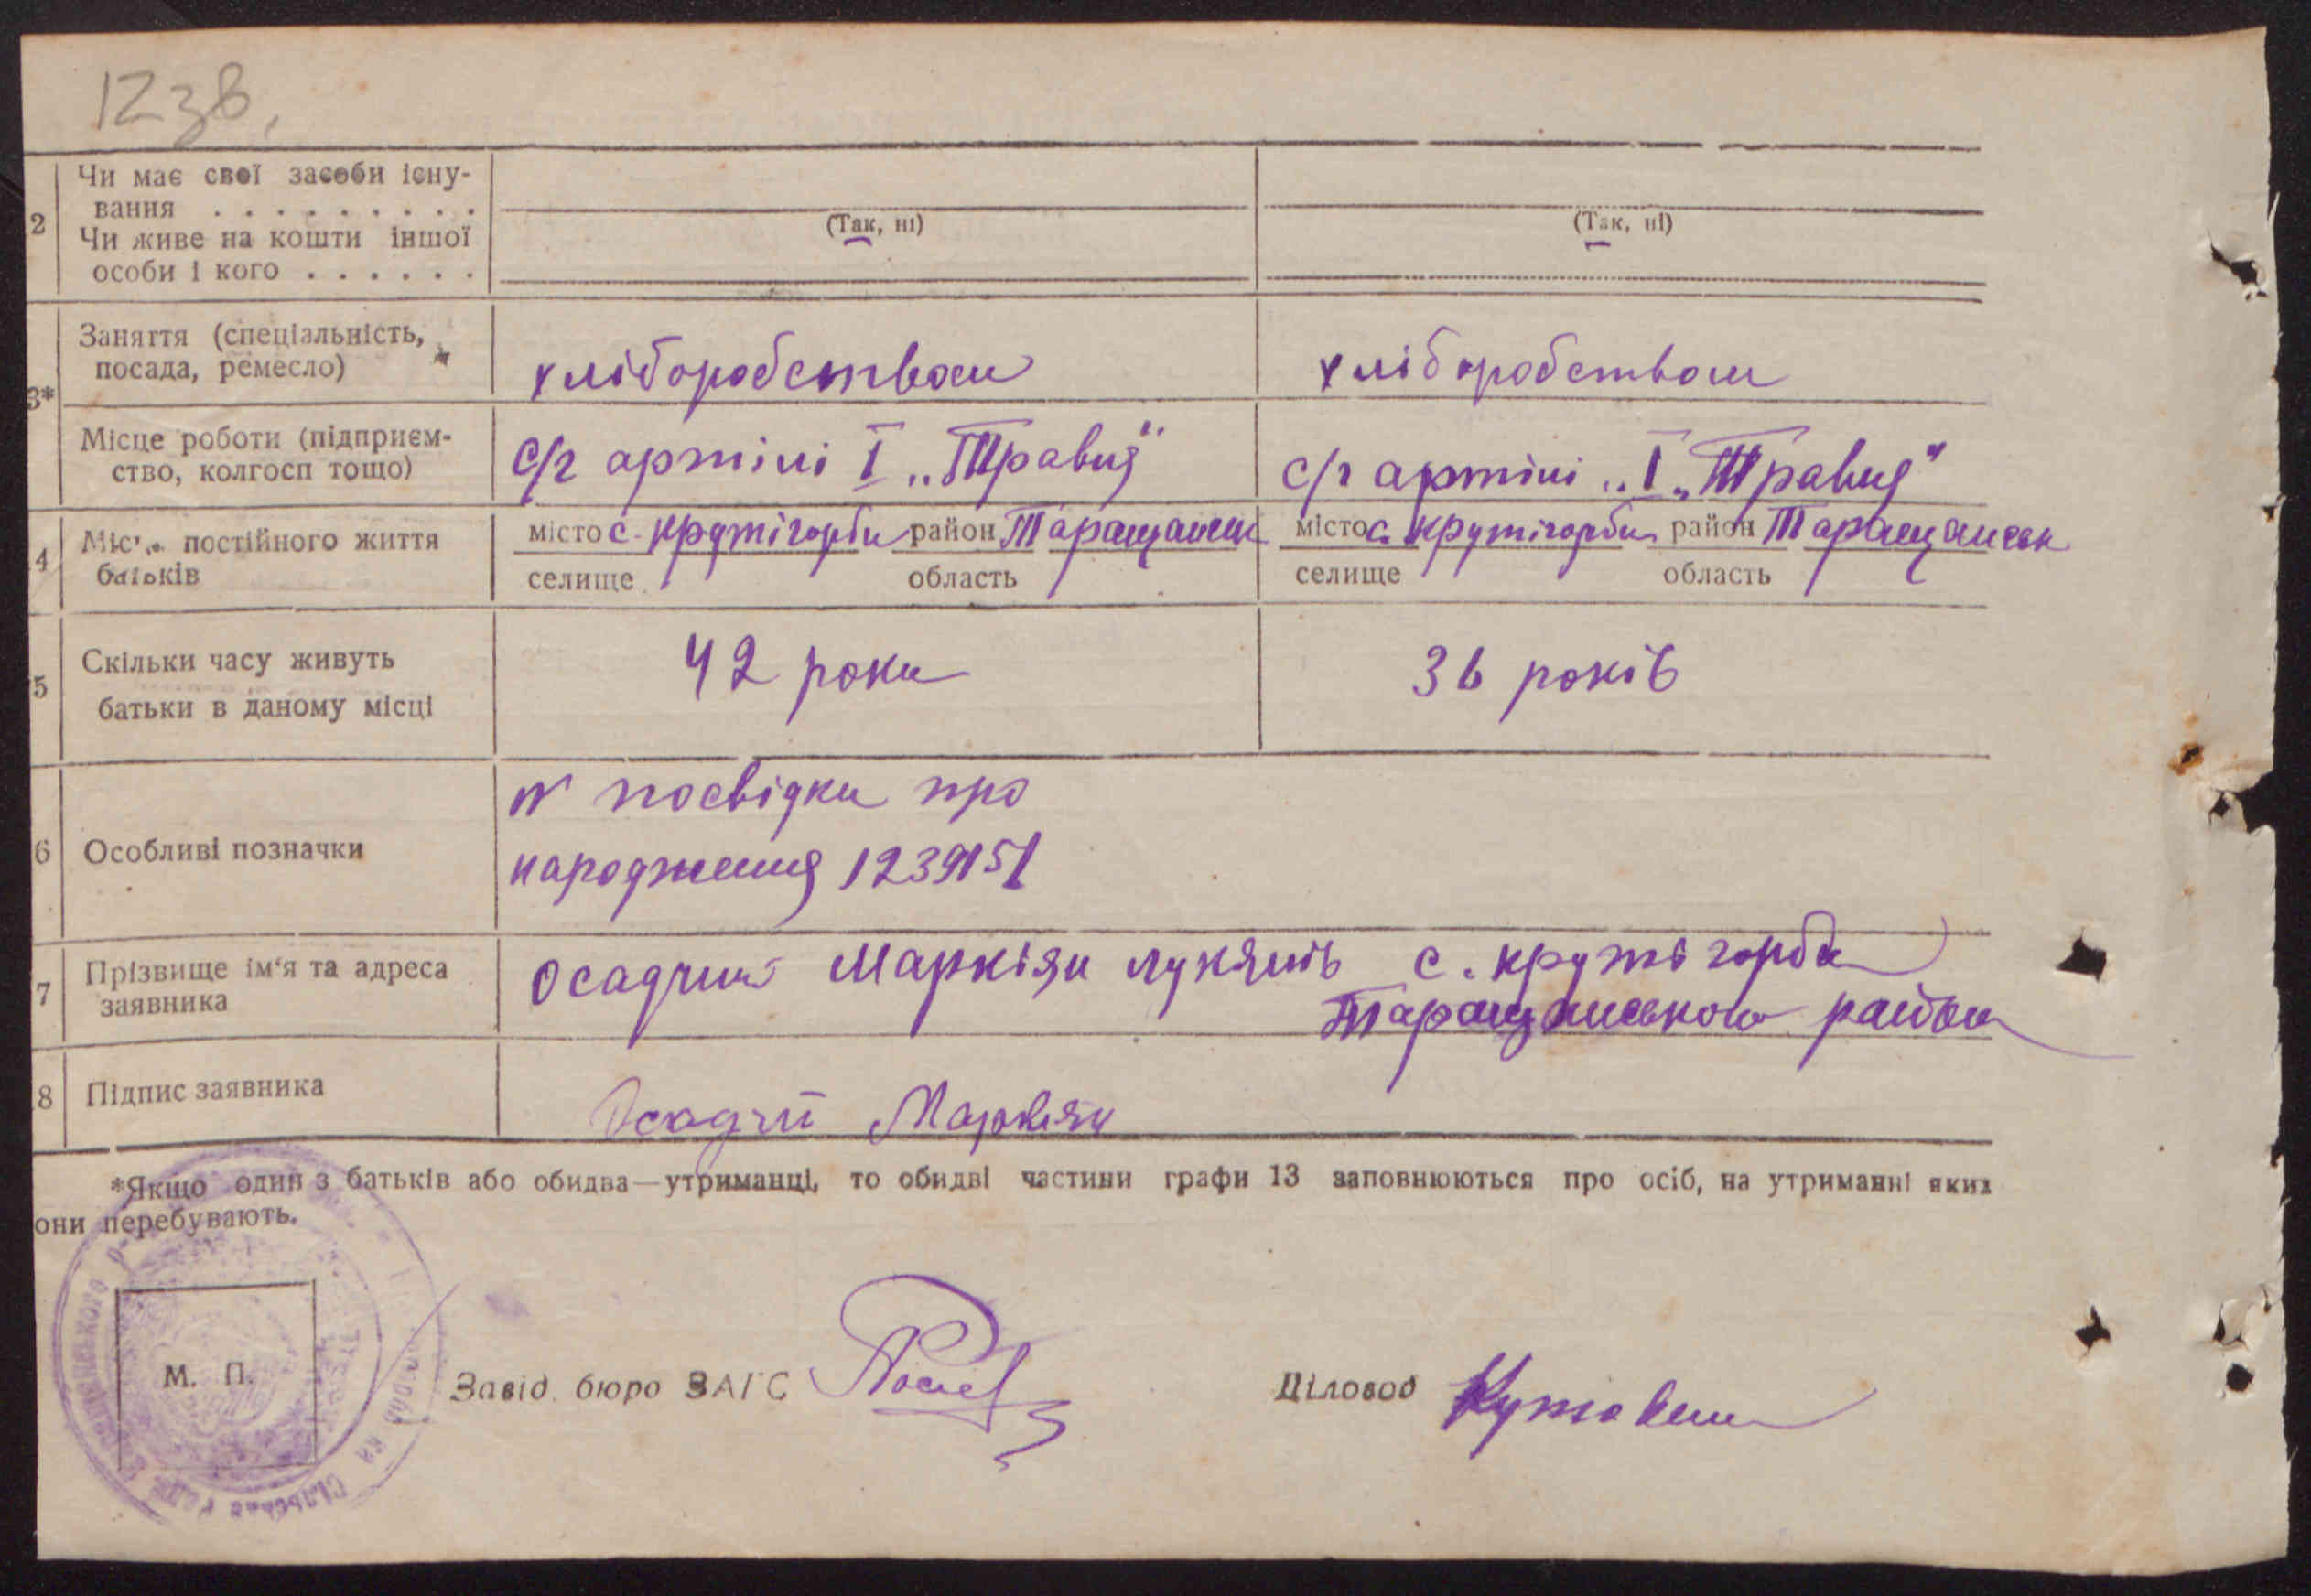 1238.
2 Чи має свої засоби існу-
вання . . . . . . . . .
Чи живе на кошти іншої
особи і кого . . . . . .
(Так, ні) (Так, ні)
3* Заняття (спеціальність,
посада, ремесло)
хліборобством хліборобством
Місце роботи (підприєм-
ство, колгосп тощо)
с/г артілі І „Травня" с/г артілі „І „Травня"
4 Місце постійного життя
батьків
місто с. Крутігорби район Таращанськ місто с. Крутігорби район Таращанськ
селище область селище область
5 Скільки часу живуть
батьки в даному місці
42 роки 36 років
6 Особливі позначки
№ посвідки про
народження 1239151
7 Прізвище ім‘я та адреса
заявника
Осадчий Маркіян лукянів с. круті горби
Таращанського району
8 Підпис заявника
Осадчій Маркіян
*Якщо один з батьків або обидва—утриманці, то обидві частини графи 13 заповнюються про осіб, на утриманні яких
они перебувають.
М. П.
Завід. бюро ЗАГС
Діловод